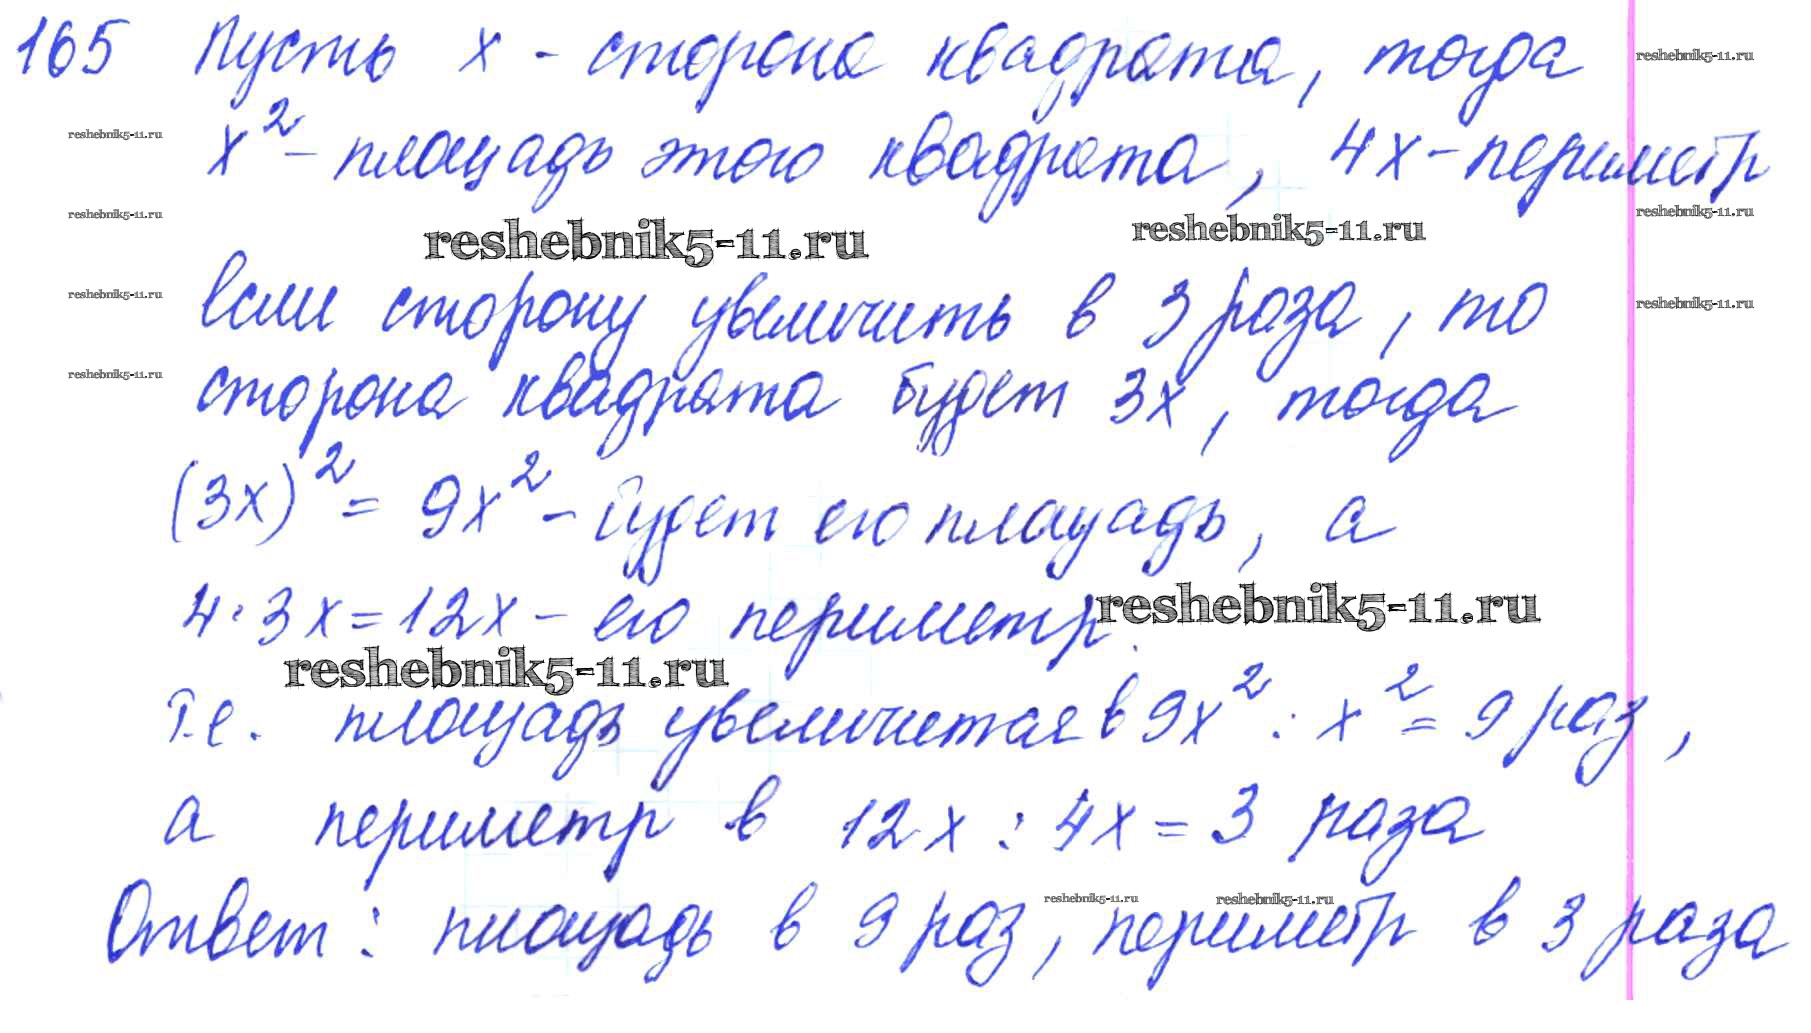 165 Пусть x - сторона квадрата, тогда
reshebnik5-11.ru
reshebnik5-11.ru
x² - площадь этого квадрата, 4x - периметр
reshebnik5-11.ru
reshebnik5-11.ru
reshebnik5-11.ru
reshebnik5-11.ru
reshebnik5-11.ru
reshebnik5-11.ru
Если сторону увеличить в 3 раза, то
reshebnik5-11.ru
сторона квадрата будет 3x, тогда
(3x)² = 9x² - будет его площадь, а
4·3x = 12x - его периметр.
reshebnik5-11.ru
reshebnik5-11.ru
т.е. площадь увеличится в 9x² : x² = 9 раз,
а периметр в 12x : 4x = 3 раза
reshebnik5-11.ru
reshebnik5-11.ru
Ответ: площадь в 9 раз, периметр в 3 раза